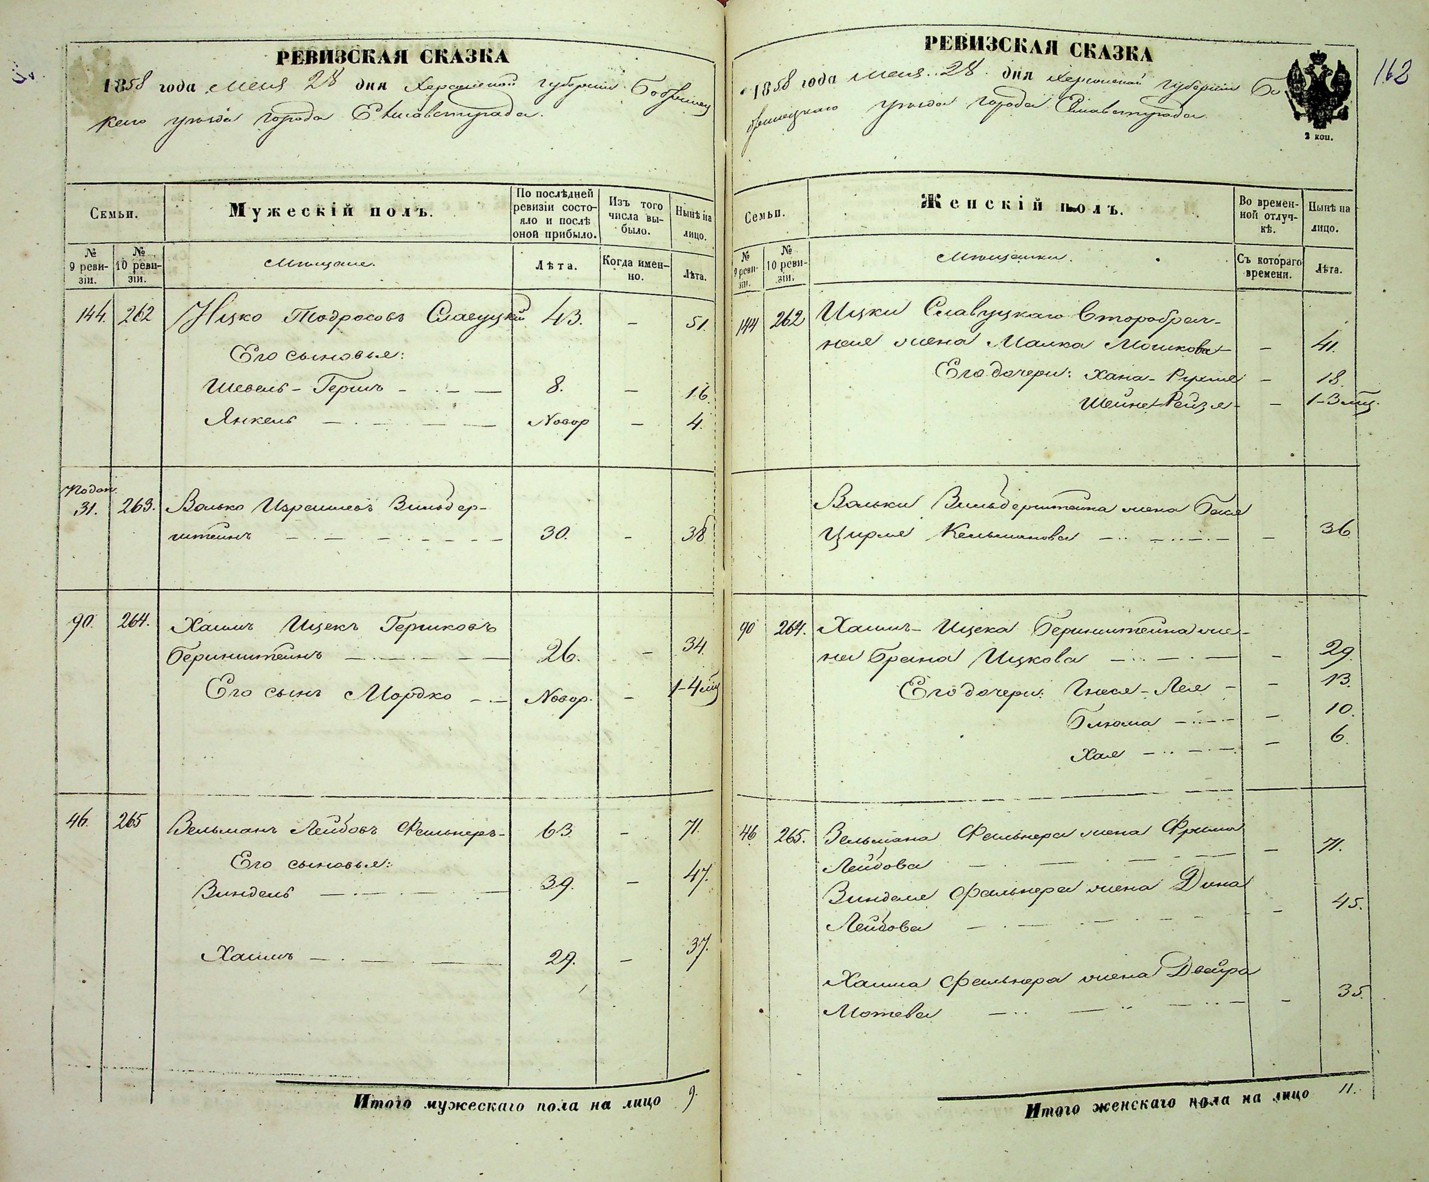 РЕВИЗСКАЯ СКАЗКА
1858 года мая 28 дня Херсонской губернiи Бобринец
каго уѣзда города Елисаветграда.
Семьи.
Мужескiй полъ.
По послѣдней ревизiи состояло и послѣ оной прибыло.
Изъ того числа выбыло.
Нынѣ на лицо.
№ 9 ревизiи.
№ 10 ревизiи.
Мѣщане.
Лѣта.
Когда именно.
Лѣта.
144. 262 Ицко Тодросовъ Славуцкiй 43. – 51.
Его сыновья:
Шевель-Гершъ 8. – 16.
Янкель Новор – 4.
Подоп. 31. 263. Волько Израилевъ Зильбер-
штейнъ 30. – 38
90. 264. Хаимъ Ицекъ Гершковъ
Беринштейнъ 26. – 34.
Его сынъ Мордко Новор. – 1-4 мѣ
46. 265 Зельманъ Лейбовъ Фельнеръ 63. – 71.
Его сыновья:
Зиндель 39. – 47.
Хаимъ 29. – 37.
Итого мужескаго пола на лицо 9.
РЕВИЗСКАЯ СКАЗКА
1858 года мая 28 дня Херсонской губернiи Бо
бринецкаго уѣзда города Елисаветграда.
2 коп.
162
Семьи.
Женскiй полъ.
Во временной отлучкѣ.
Нынѣ на лицо.
№ 9 ревизiи.
№ 10 ревизiи.
Мѣщанки.
Съ котораго времени.
Лѣта.
144 262 Ицки Славуцкаго второбрач-
ная жена Малка Мошкова – 41.
Его дочери: Хана-Рухля – 18.
Шейне-Рейзя – 1-3 мѣц.
Вольки Зильберштейна жена Бася
Цирля Кельманова – 36
90 264. Хаимъ-Ицека Беринштейна же-
на Брана Ицкова – 29.
Его дочери: Гнеся-Лея – 13.
Блюма – 10.
Хая – 6.
46 265. Зельмана Фельнера жена Фрима
Лейбова – 71.
Зинделя Фельнера жена Дина
Лейбова – 45.
Хаима Фельнера жена Двейра
Мотева – 35.
Итого женскаго пола на лицо 11.